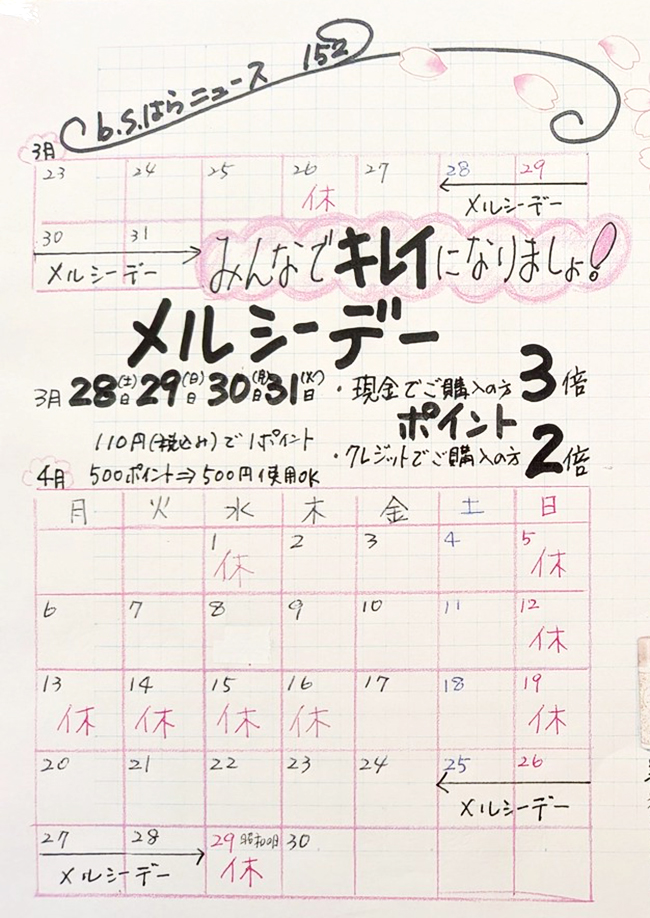 b.s.はらニュース 152
3月
23 24 25 26 27 28 29
休
メルシーデー
30 31
メルシーデー
みんなでキレイになりましょ!
メルシーデー
3月28日(土)29日(日)30日(月)31日(火)
・現金でご購入の方 3倍
ポイント
・クレジットでご購入の方 2倍
110円(税込み)で1ポイント
500ポイント⇒500円使用OK
4月
月 火 水 木 金 土 日
1 2 3 4 5
休 休
6 7 8 9 10 11 12
休
13 14 15 16 17 18 19
休 休 休 休 休
20 21 22 23 24 25 26
メルシーデー
27 28 29 昭和の日 30
メルシーデー 休